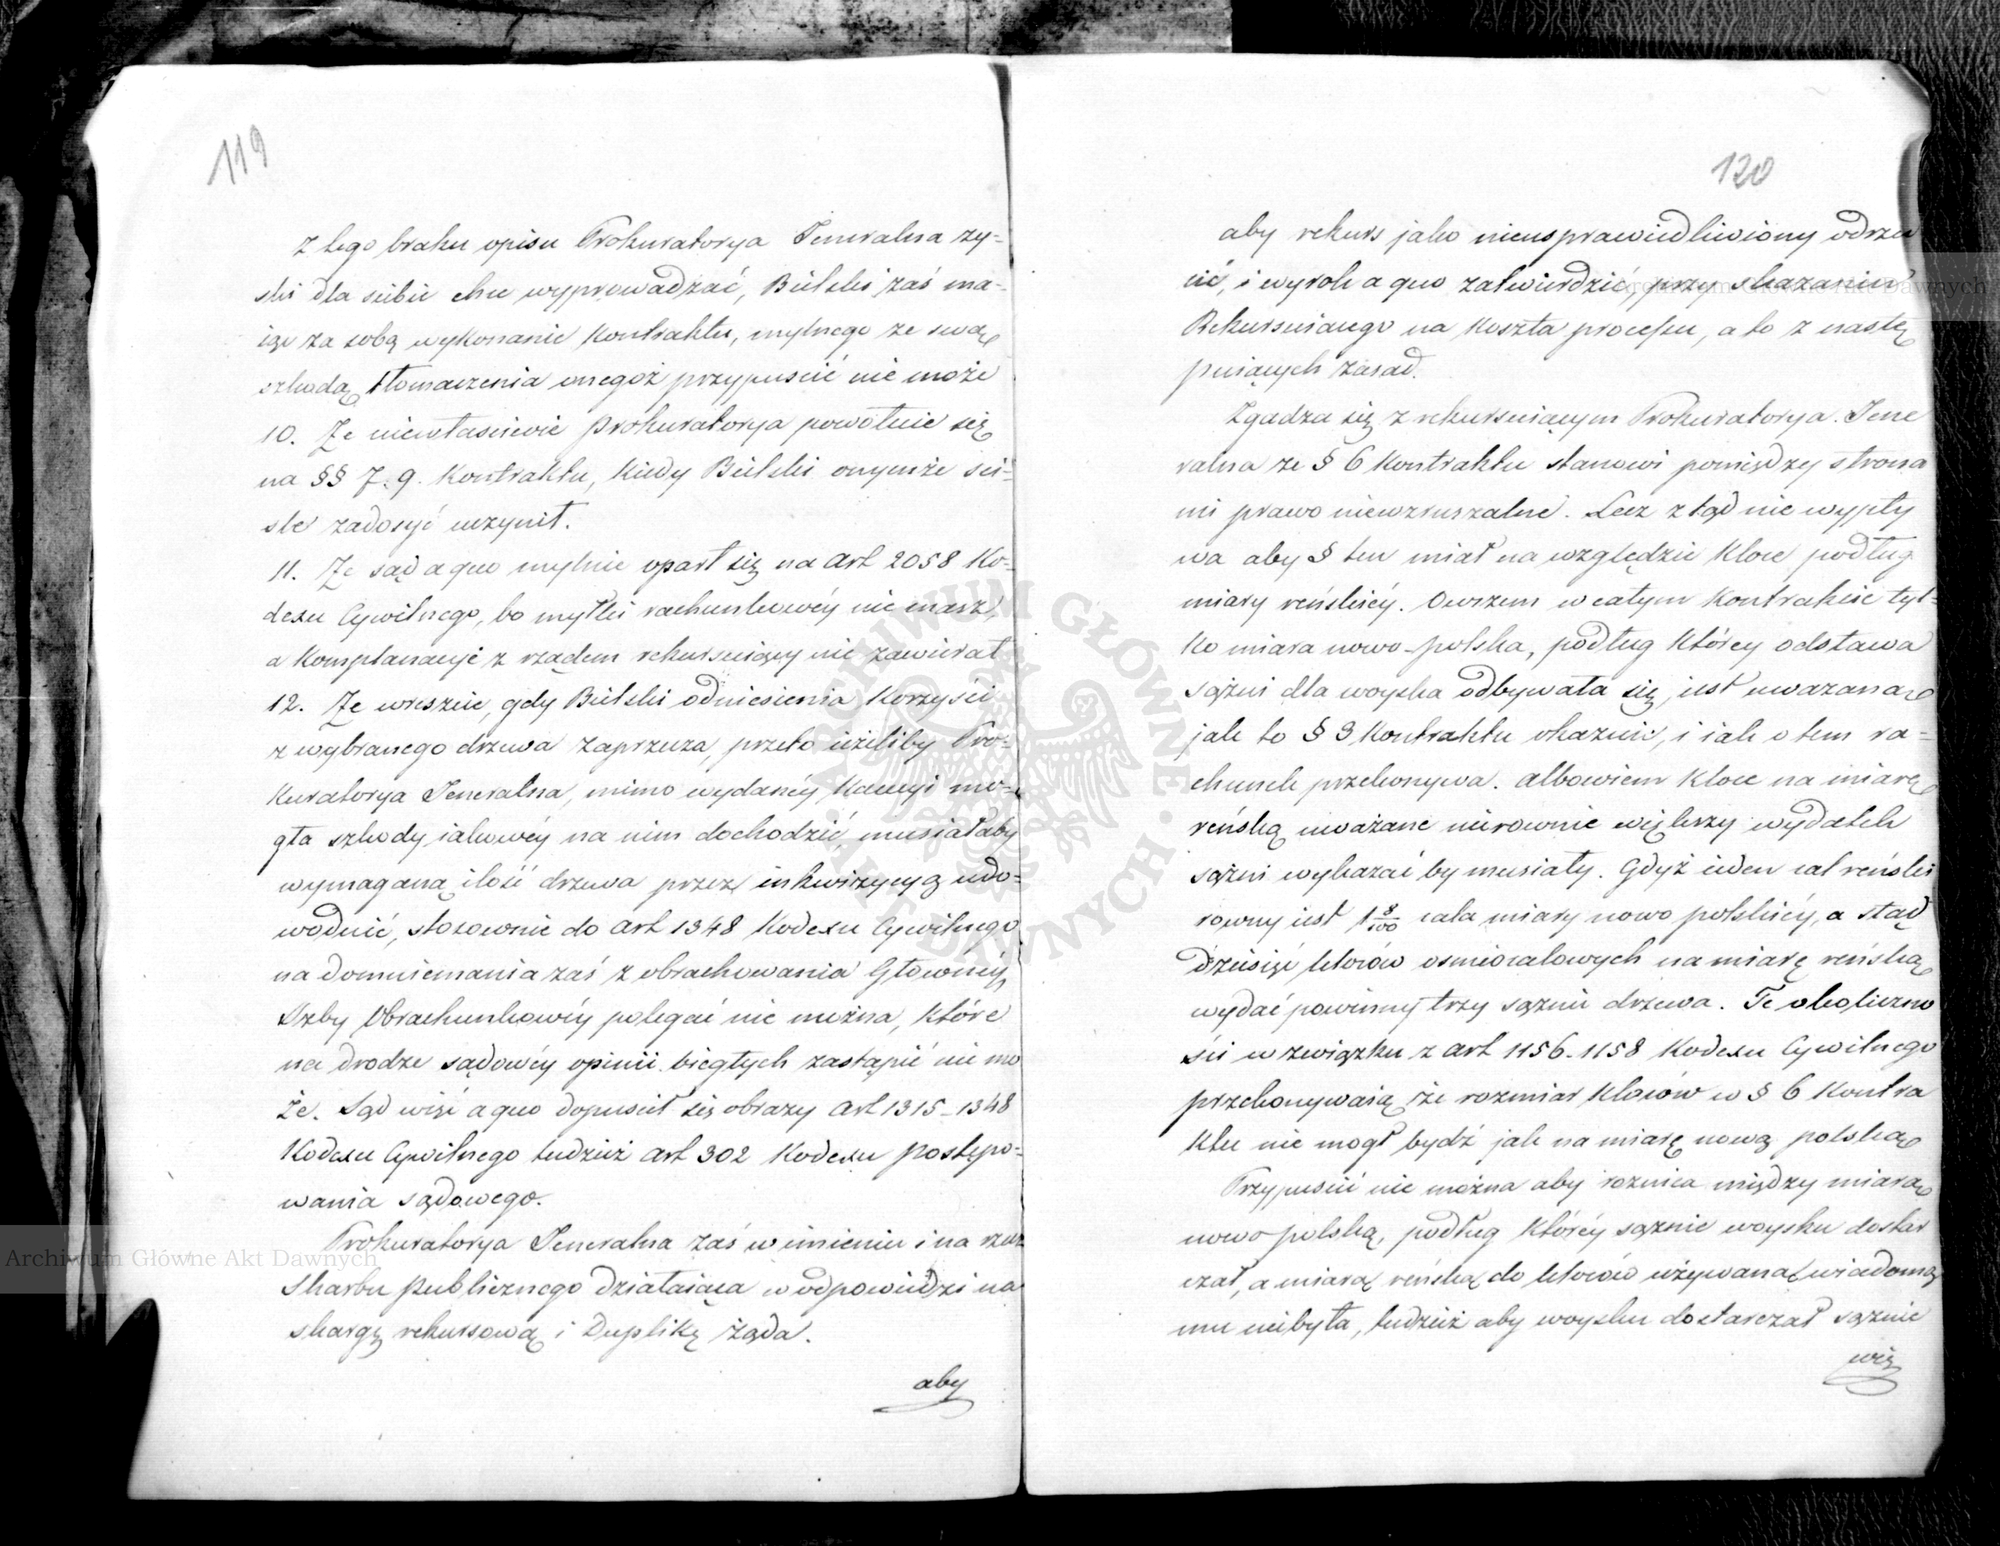 119
z tego braku opisu Prokuratorya Jeneralna zy-
ski dla siebie chce wyprowadzać, Bielski zaś ma-
iąc za sobą wykonanie Kontraktu, mylnego ze swą
szkodą tłomaczenia onegoż przypuścić nie może
10. Że niewłaściwie Prokuratorya powołuie się
na §§ 7. 9. Kontraktu, kiedy Bielski onymże ści-
śle zadosyć uczynił.
11. Że sąd a quo mylnie oparł się na art 2058 Ko-
dexu Cywilnego, bo myłki rachunkowéy nie masz,
a Komplanacyi z rządem rekursuiący nie zawierał
12. Że wreszcie, gdy Bielski odniesienia Korzyści
z wybranego drzewa zaprzecza, przeto ieżeliby Pro-
kuratorya Jeneralna, mimo wydanéy Kaucyi mo-
gła szkody iakowéy na nim dochodzić, musiałaby
wymaganą ilość drzewa przez inkwizycyą udo-
wodnić, stosownie do art 1348 Kodexu Cywilnego
na domniemania zaś z obrachowania Głownéy
Izby Obrachunkowéy polegać nie można, które
na drodze sądowéy opinii biegłych zastąpić nie mo
że. Sąd więc a quo dopuścił się obrazy art 1315-1348
Kodexu Cywilnego tudzież art 302 Kodexu postępo-
wania sądowego.
Prokuratorya Jeneralna zaś w imieniu i na rzecz
Skarbu publicznego działaiąca w odpowiedzi na
skargę rekursową i Duplikę żąda.
aby
120
aby rekurs jako nieusprawiedliwiony odrzu
cić, i wyrok a quo zatwierdzić, przy skazaniu
Rekursuiącego na Koszta processu, a to z nastę
puiących zasad.
Zgadza się z rekursuiącym Prokuratorya Jene
ralna ze § 6 Kontraktu stanowi pomiędzy strona
mi prawo niewzruszalne. Lecz ztąd nie wypły
wa aby § ten miał na względzie Kloce podług
miary reńskiéy. Owszem w całym Kontrakcie tyl-
ko miara nowo-polska, podług Którey odstawa
sążni dla woyska odbywała się, iest uważaną
jak to § 3 Kontraktu okazuie, i iak o tem ra-
chunek przekonywa. albowiem Kloce na miarę
reńską uważane nierownie większy wydatek
sążni wykazać by musiały. Gdyż ieden cal reński
rowny iest 1 8/100 cala miary nowo polskiéy, a stąd
dziesięć kloców osmiocalowych na miarę reńską
wydać powinny trzy sążnie drzewa. Te okoliczno
ści w związku z art 1156-1158 Kodexu Cywilnego
przekonywaią że rozmiar Kloców w § 6 Kontra
ktu nie mogł bydź jak na miarę nową polską
Przypuścić nie można aby roznica między miarą
nowo polską, podług Któréy sążnie woysku dostar
czał, a miarą reńską do kloców używaną wiadomą
mu niebyła, tudzież aby woysku dostarczał sążnie
wię
Archiwum Główne Akt Dawnych
Archiwum Główne Akt Dawnych
ARCHIWUM GŁÓWNE AKT DAWNYCH